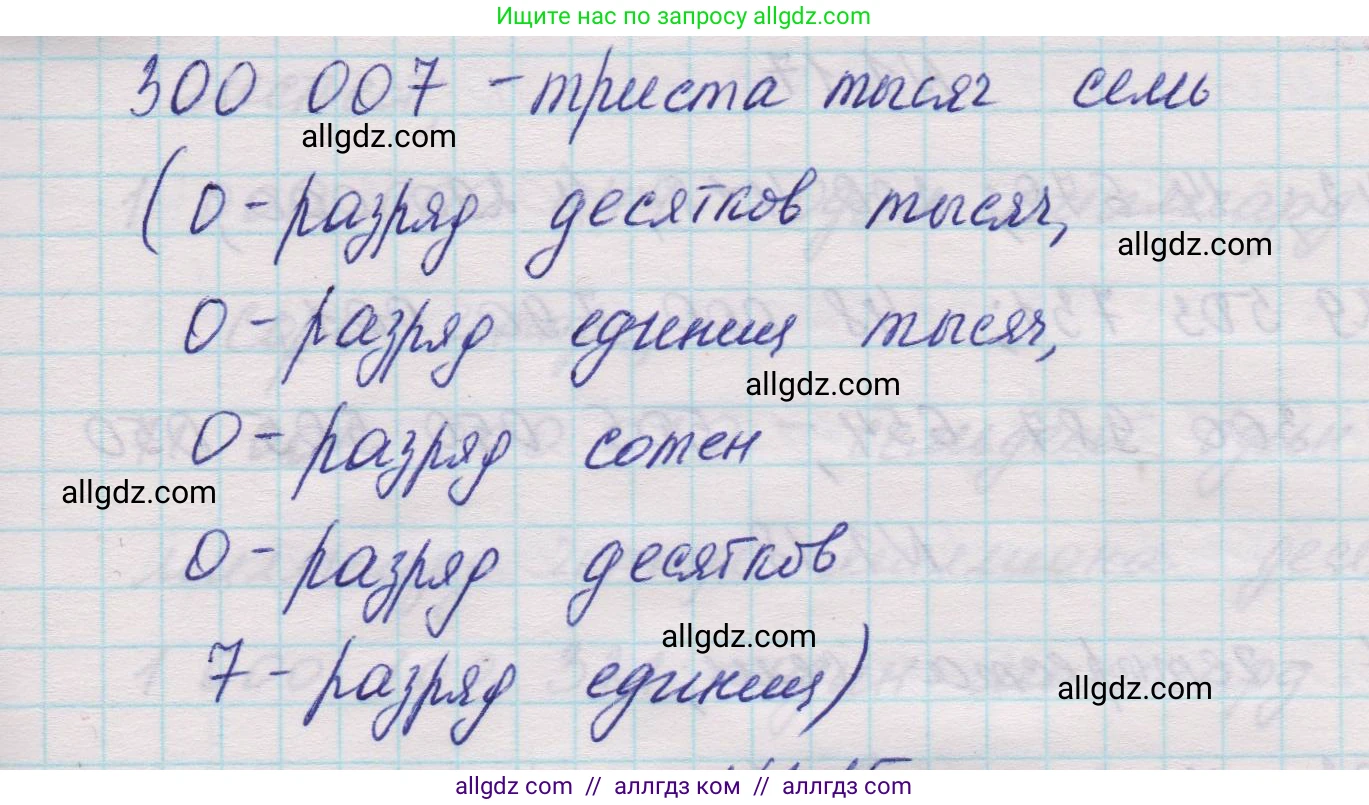 Ищите нас по запросу allgdz.com
300 007 - триста тысяч семь
allgdz.com
(0 - разряд десятков тысяч,
allgdz.com
0 - разряд единиц тысяч,
allgdz.com
0 - разряд сотен
allgdz.com
0 - разряд десятков
allgdz.com
7 - разряд единиц)
allgdz.com
allgdz.com // аллгдз ком // аллгдз.com